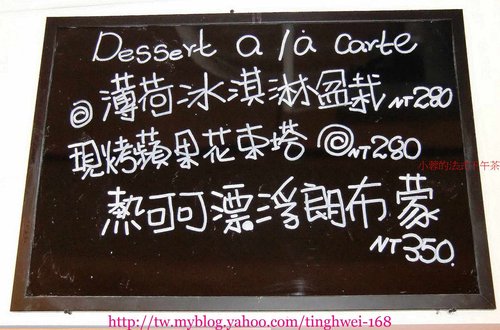 Dessert a la carte
@ 薄荷冰淇淋盆栽 NT280
現烤蘋果花束塔 @NT280
小蓉的法式下午茶
熱可可漂浮朗布蒙
NT350.
http://tw.myblog.yahoo.com/tinghwei-168